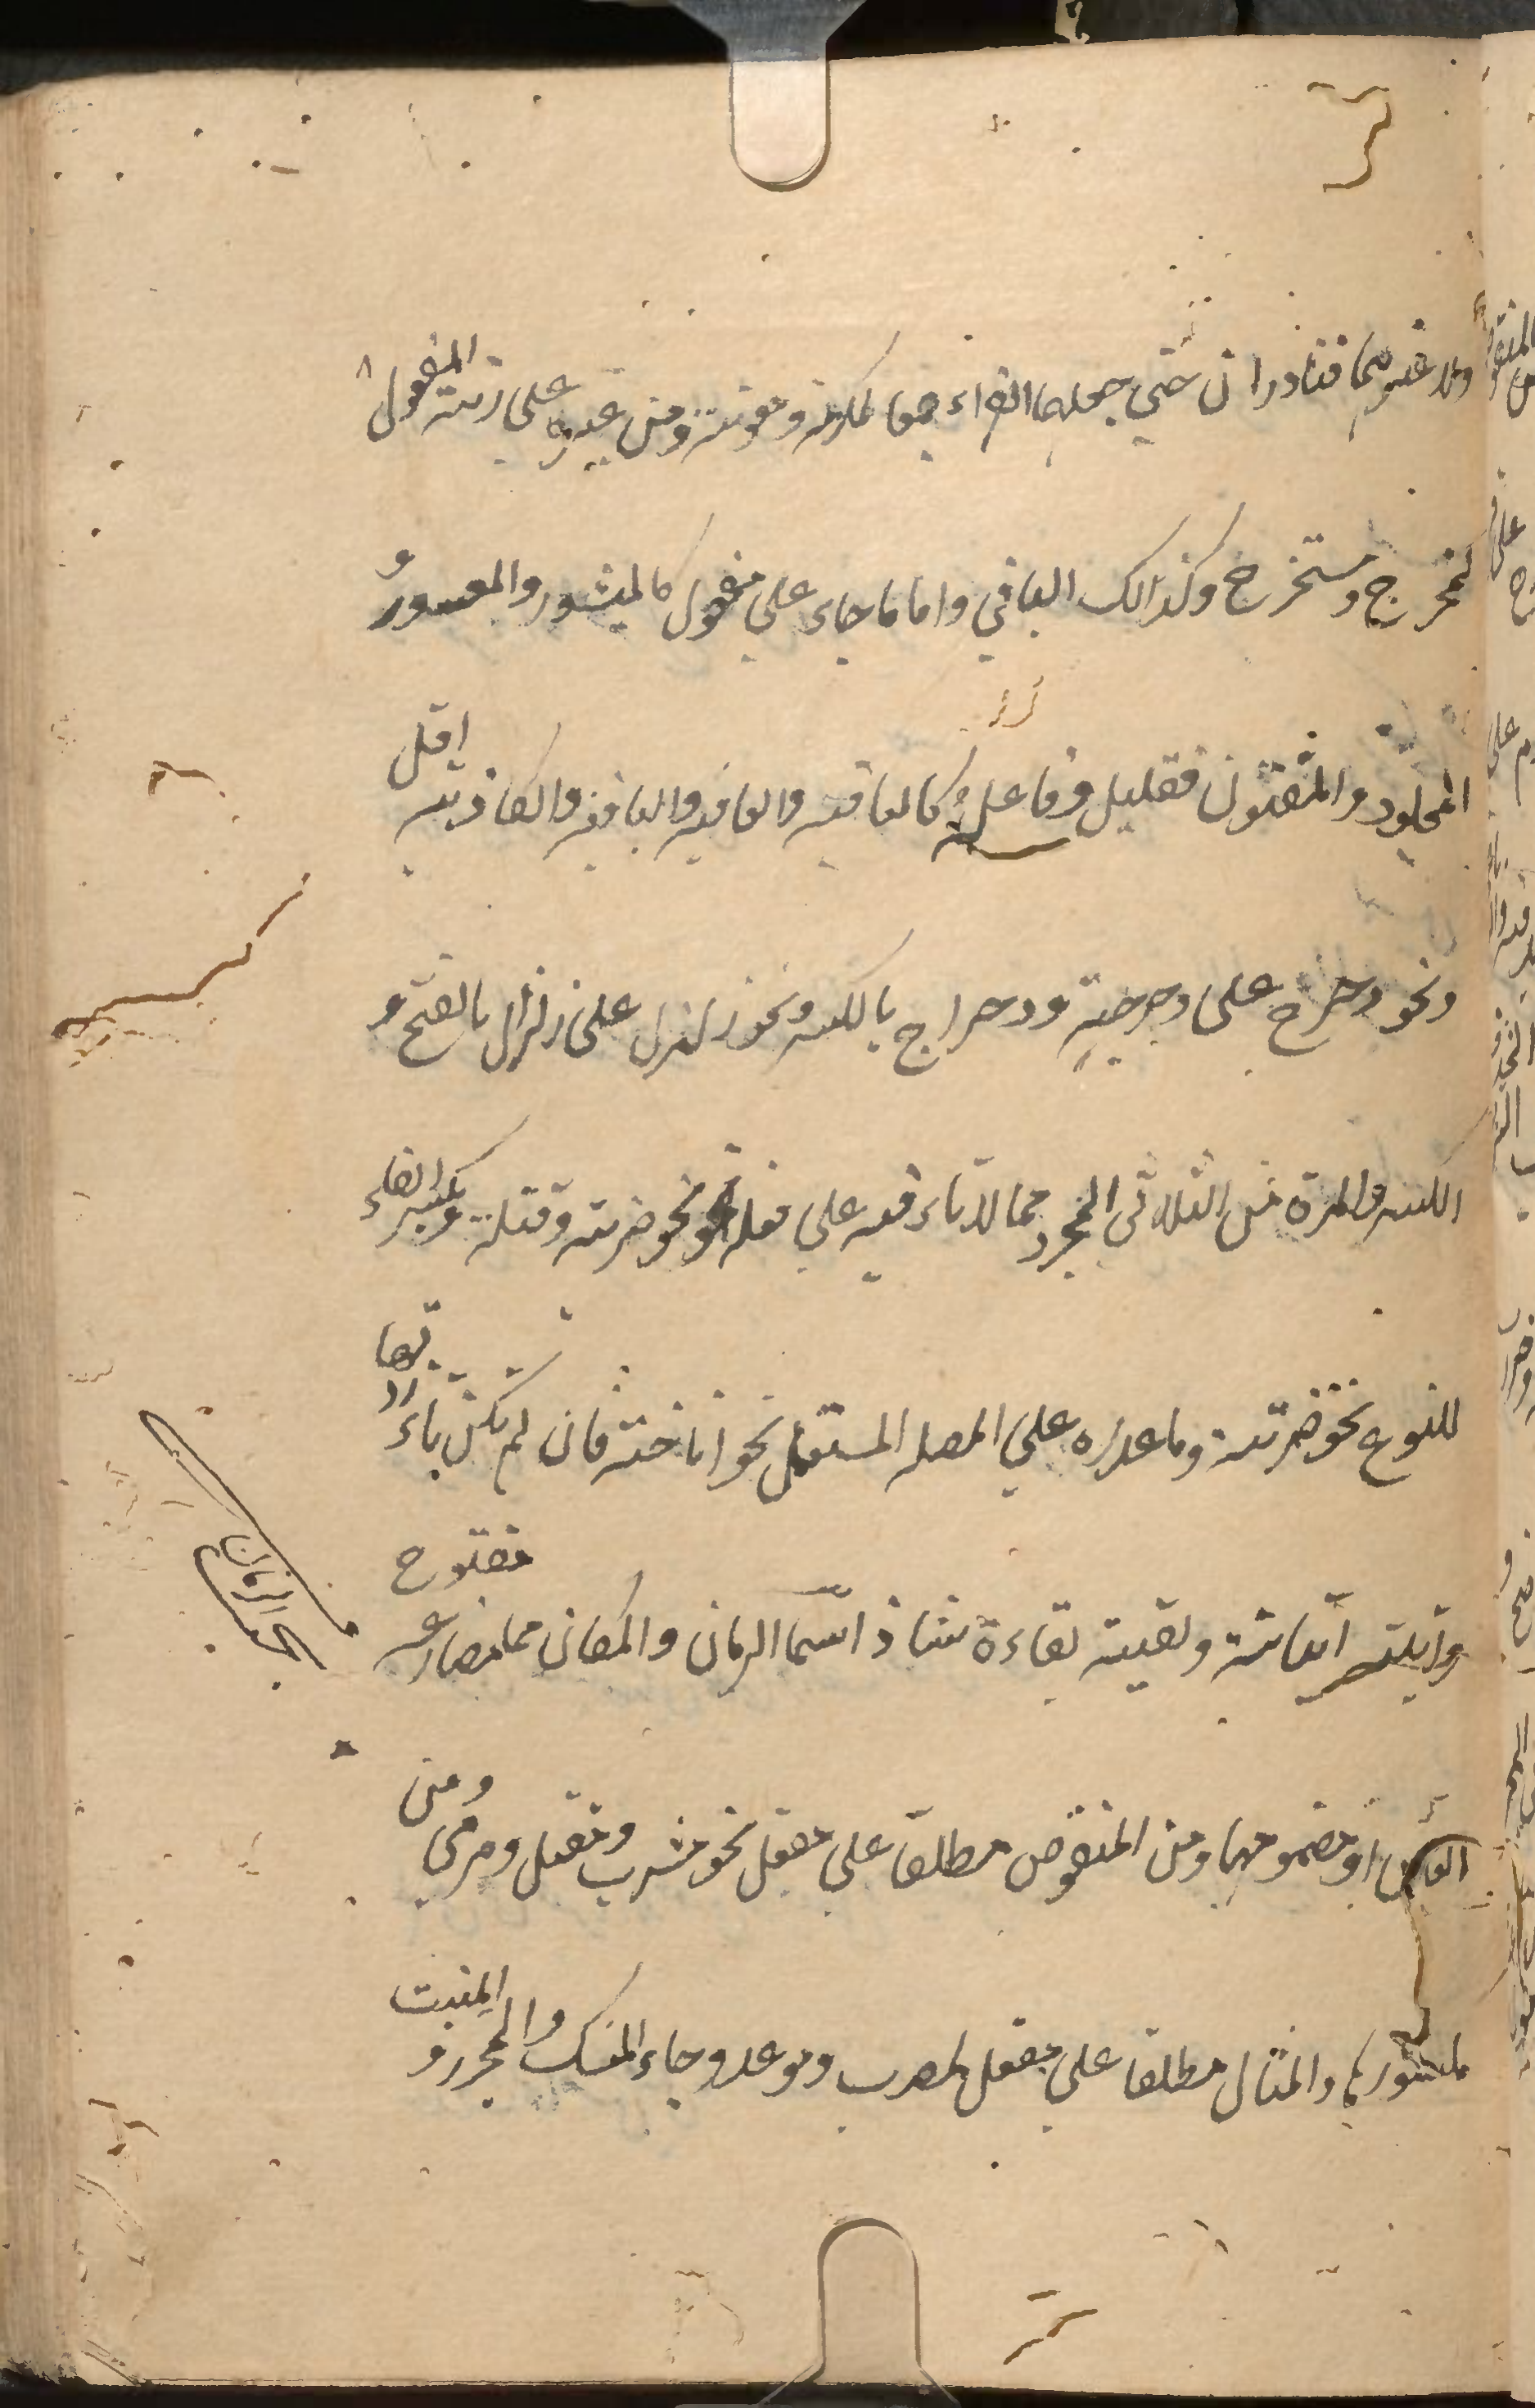 ولا غيرهما فنادران حتي جعلهما الفراء جمعا لمكرمة ومعونة ومن غيره على زنة المفعول
كمخرج ومستخرج وكذالك الباقي واما ما جاء علي مفعول كالميسور والمعسور و
المجلود والمفتون فقليل وفاعلة كالعافية والعاقبة والباقية والكاذبة اقل
ونحو دحرج على دحرجة ودحراج بالكسر ونحو زلزل على زلزال بالفتح و
الكسر والمرة من الثلاثي المجرد مما لا تاء فيه علي فعلة نحو ضربة وقتلة وبكسر الفاء
للنوع نحو ضربة وما عداه علي المصدر المستعمل نحو اناخة فان لم تكن تاء زدتها
واتيته اتيانة ولقيته لقاءة شاذ اسما الزمان والمكان مما مضارعه مفتوح
العين او مضمومها ومن المنقوص مطلقا علي مفعل نحو مشرب ومقتل ومرمي ومن
مكسورها والمثال مطلقا علي مفعل كمضرب وموعد وجاء المنسك والمجزر والمنبت
الزمان